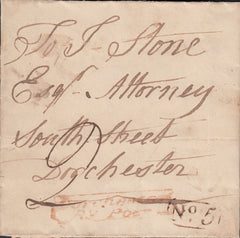 To J. Stone
Esqr. Attorney
South Street
Dorchester
2
Py Post
No. 5